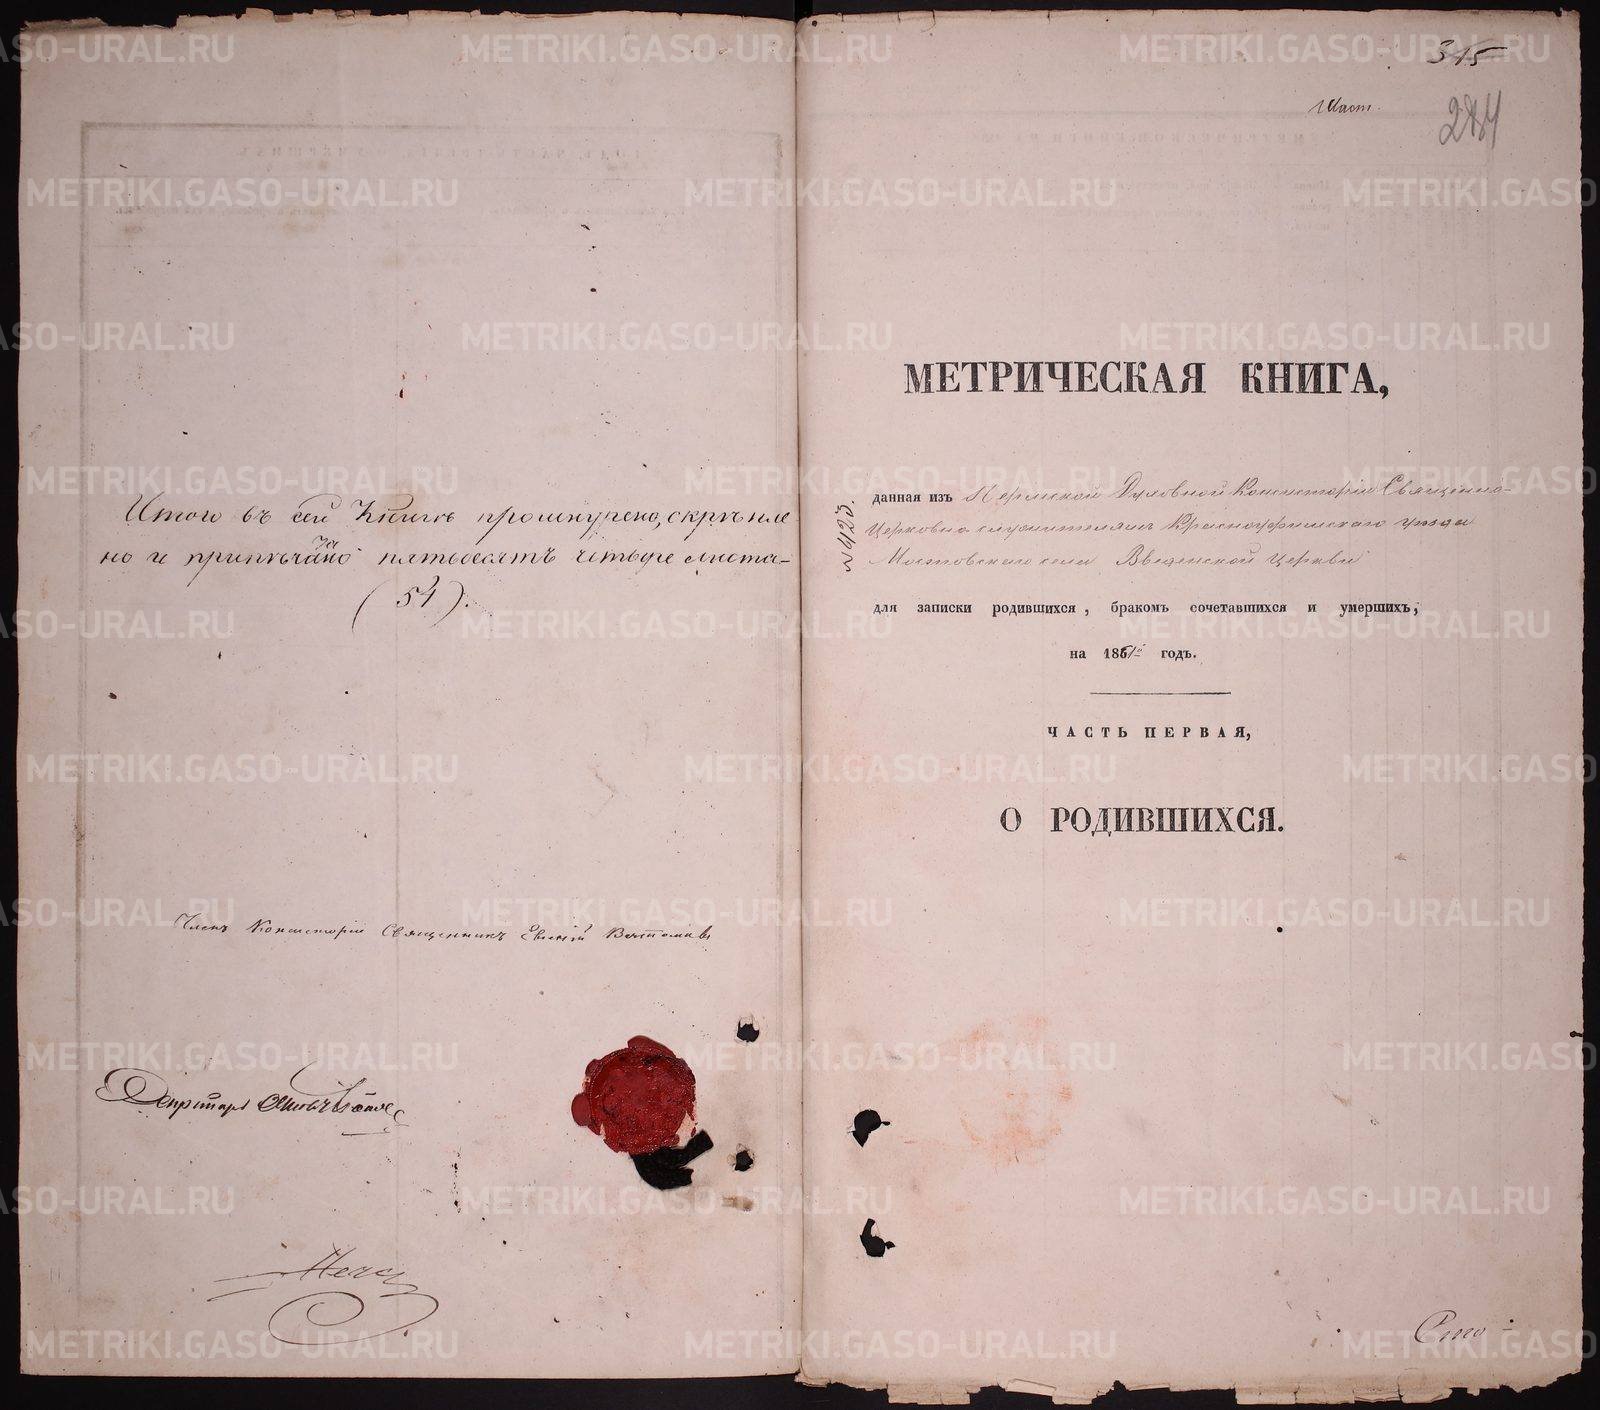 Итого въ сей Книгѣ прошнурено, скрѣпле
но и припечатано пятьдесятъ четыре листа-
(54).
Членъ Консисторіи Священникъ Евгеній
Секретарь
315
284
МЕТРИЧЕСКАЯ КНИГА,
№ 423.
данная изъ Пермской Духовной Консисторіи Священно-
Церковно служителямъ Красноуфимскаго уѣзда
Мостовскаго села Введенской Церкви
для записки родившихся, бракомъ сочетавшихся и умершихъ,
на 1861й годъ.
ЧАСТЬ ПЕРВАЯ,
О РОДИВШИХСЯ.
METRIKI.GASO-URAL.RU